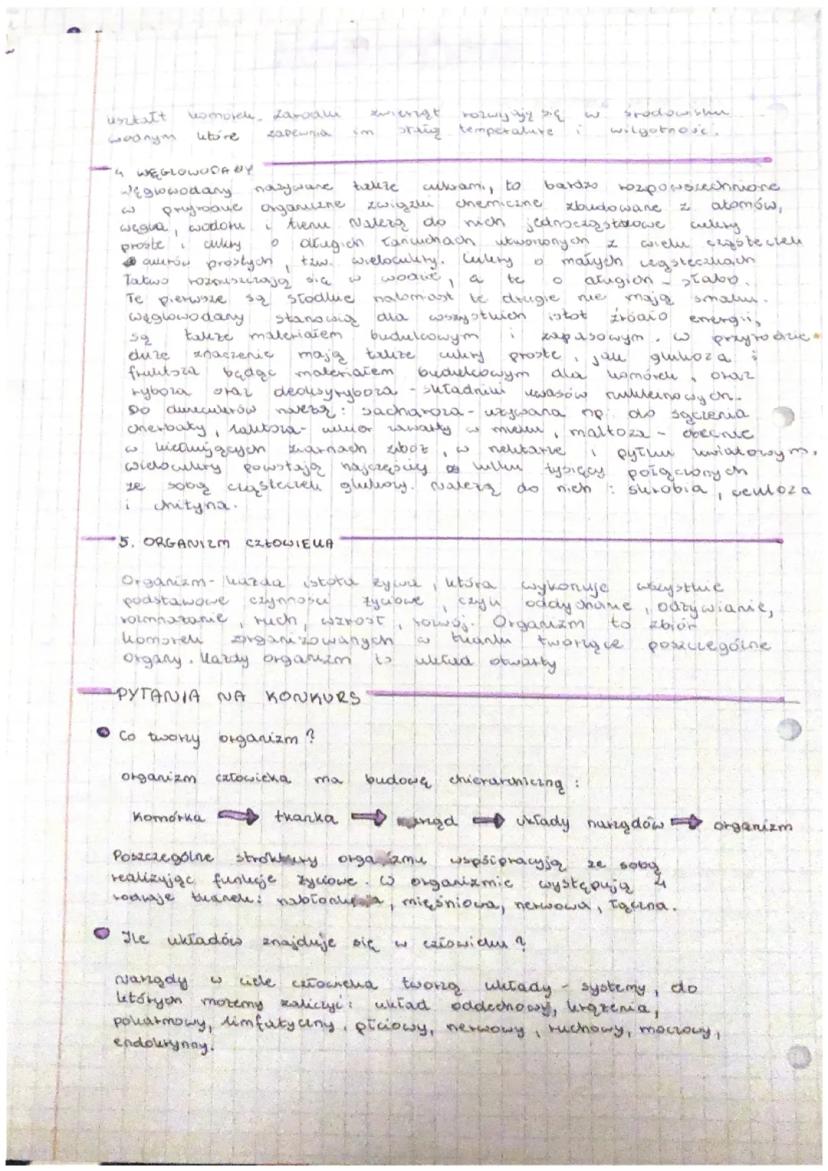 kształt komórek. Zarodki zwierząt rozwijają się w środowisku
wodnym które zapewnia im stałą temperaturę i wilgotność.
4. WĘGLOWODANY
Węglowodany nazywane także cukrami, to bardzo rozpowszechnione
w przyrodzie organiczne związki chemiczne zbudowane z atomów,
węgla, wodoru i tlenu. Należą do nich jednocząstkowe cukry
proste i cukry o długich łańcuchach utworzonych z wielu cząsteczek
cukrów prostych, tzw. wielocukry. Cukry o małych cząsteczkach
łatwo rozpuszczają się w wodzie, a te o długich - słabo.
Te pierwsze są słodkie natomiast te drugie nie mają smaku.
Węglowodany stanowią dla wszystkich istot źródło energii,
są także materiałem budulcowym i zapasowym. W przyrodzie
duże znaczenie mają także cukry proste, jak glukoza i
fruktoza będąc materiałem budulcowym dla komórek, oraz
ryboza oraz deoksyryboza - składniki kwasów nukleinowych.
Do dwucukrów należą: sacharoza - używana np. do słodzenia
cherbaty, laktoza - cukier zawarty w mleku, maltoza - obecnie
w kiełkujących ziarnach zbóż, w nektarze i pyłku kwiatowym.
Wielocukry powstają najczęściej z kilku tysięcy połączonych
ze sobą cząsteczek glukozy. Należą do nich: skrobia, celuloza
i chityna.
5. ORGANIZM CZŁOWIEKA
Organizm - każda istota żywa, która wykonuje wszystkie
podstawowe czynności życiowe, czyli oddychanie, odżywianie,
rozmnażanie, ruch, wzrost, rozwój. Organizm to zbiór
komórek zorganizowanych w tkanki tworzące poszczególne
organy. Każdy organizm to układ otwarty
PYTANIA NA KONKURS
Co tworzy organizm?
organizm człowieka ma budowę chierarchiczną:
komórka → tkanka → narząd → układy narządów → organizm
Poszczególne struktury organizmu współpracują ze sobą
realizując funkcje życiowe. W organizmie występują 4
rodzaje tkanek: nabłonkowa, mięśniowa, nerwowa, łączna.
Ile układów znajduje się w człowieku?
Narządy w ciele człowieka tworzą układy - systemy, do
których możemy zaliczyć: układ oddechowy, krążenia,
pokarmowy, limfatyczny, płciowy, nerwowy, ruchowy, moczowy,
endokrynny.